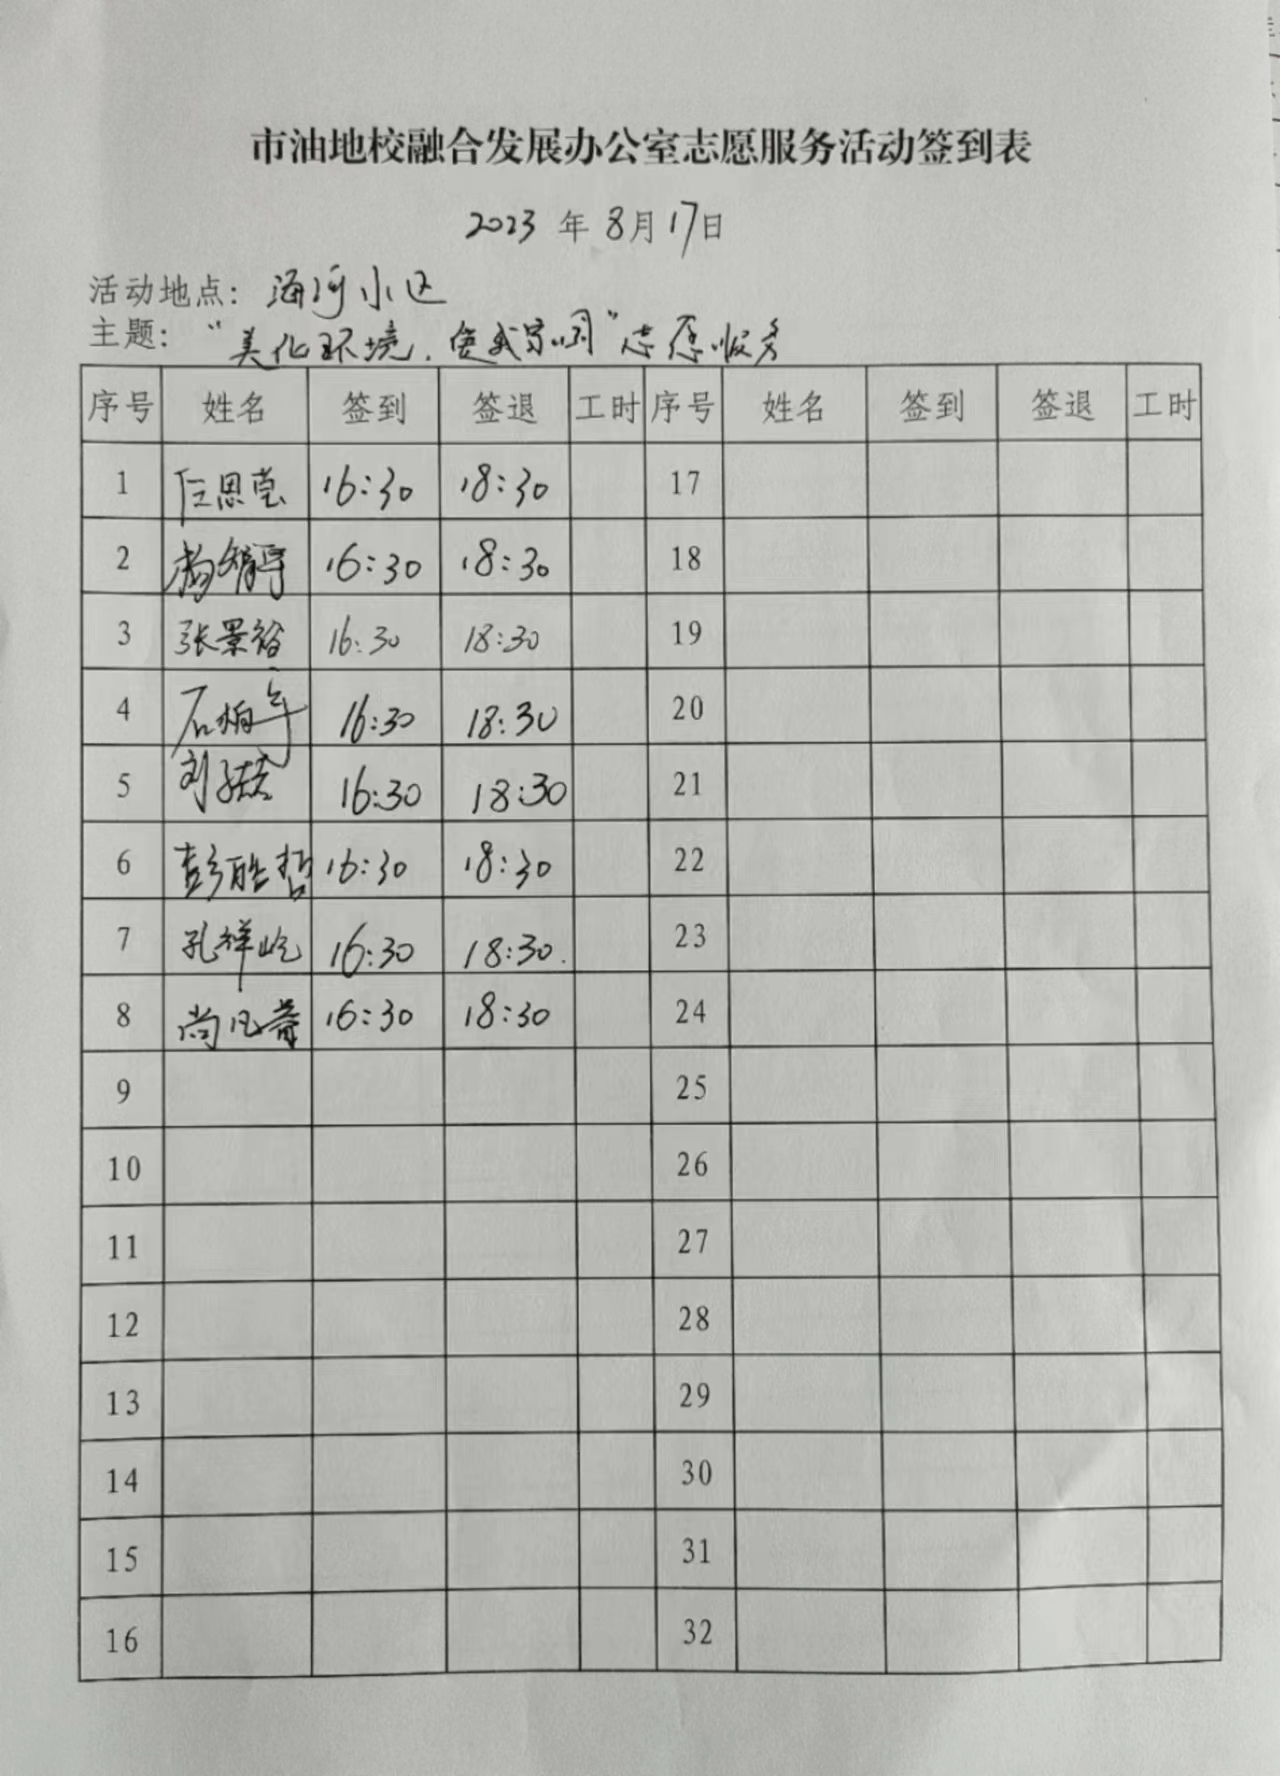 市油地校融合发展办公室志愿服务活动签到表
2023 年 8月17日
活动地点：海河小区
主题：“美化环境，使我家园”志愿服务
序号 姓名 签到 签退 工时 序号 姓名 签到 签退 工时
1 任思莹 16:30 18:30 17
2 杨 16:30 18:30 18
3 张景裕 16:30 18:30 19
4 石柏年 16:30 18:30 20
5 刘 16:30 18:30 21
6 彭皓哲 16:30 18:30 22
7 孔祥屹 16:30 18:30. 23
8 尚凡 16:30 18:30 24
9 25
10 26
11 27
12 28
13 29
14 30
15 31
16 32